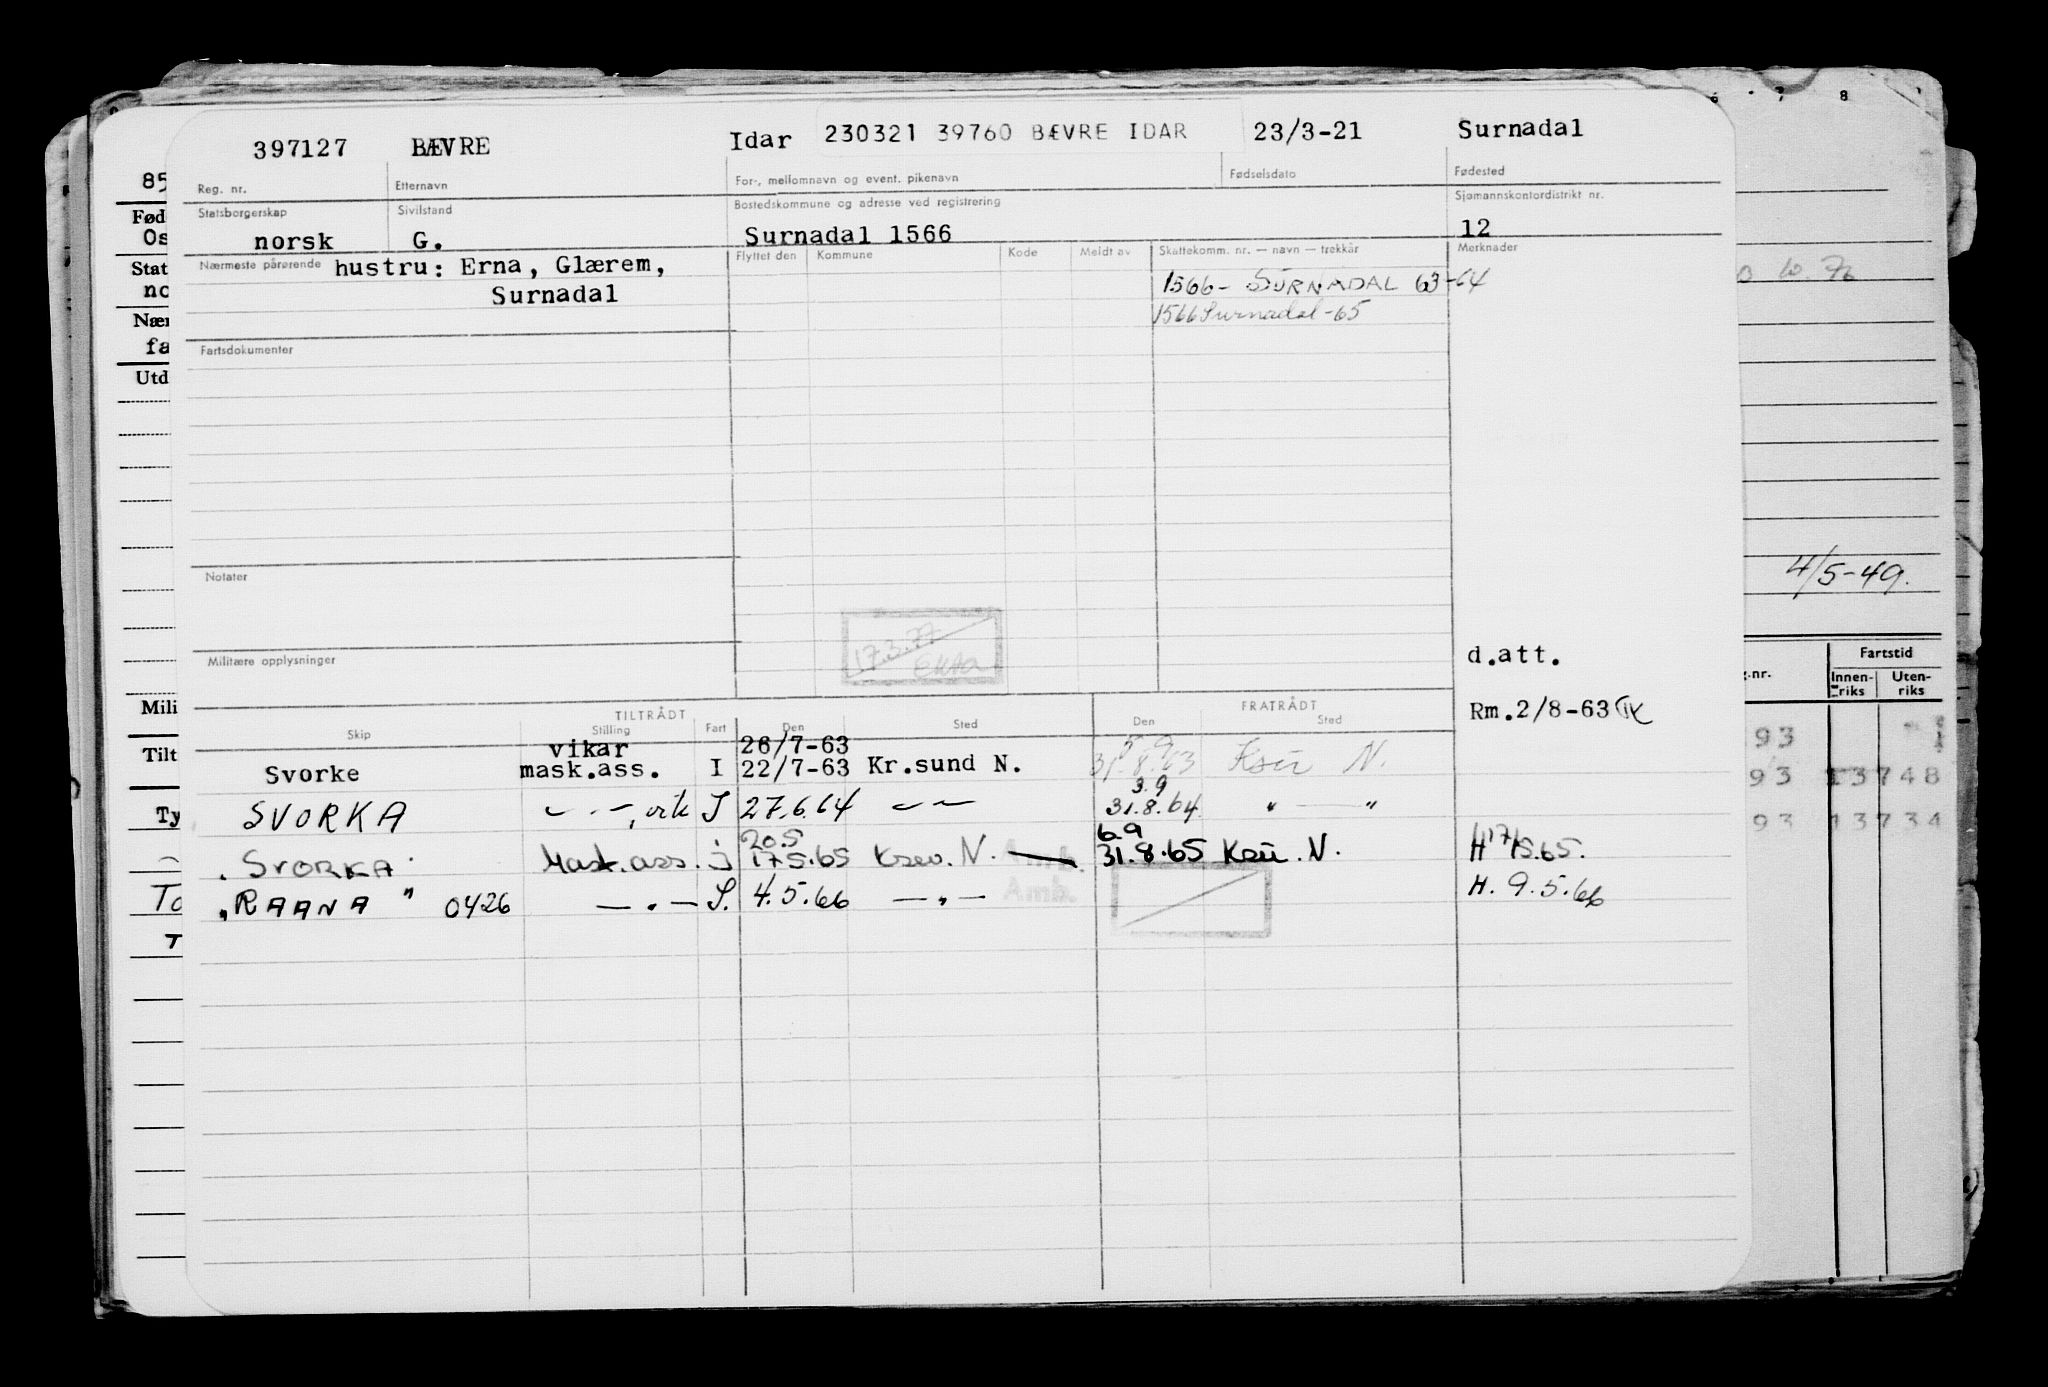 397127 BÆVRE Idar 230321 39760 BÆVRE IDAR 23/3-21 Surnadal
Reg. nr. Etternavn For-, mellomnavn og event. pikenavn Fødselsdato Fødested
Statsborgerskap Sivilstand Bostedskommune og adresse ved registrering Sjømannskontordistrikt nr.
norsk G. Surnadal 1566 12
Nærmeste pårørende hustru: Erna, Glærem, Flyttet den Kommune Kode Meldt av Skattekomm. nr. — navn — trekkår Merknader
Surnadal 1566 - SURNADAL 63-64
1566 Surnadal -65
Fartsdokumenter
Notater
17.3.77
Militære opplysninger
d.att.
Rm.2/8-63
TILTRÅDT FRATRÅDT
Skip Stilling Fart Den Sted Den Sted
vikar 26/7-63 5.9
Svorke mask.ass. I 22/7-63 Kr.sund N. 31.8.63 Ksu N.
3.9
SVORKA — " —, vik I 27.6.64 — " — 31.8.64 " — "
20.5 6.9
"SVORKA" Mask.ass. i 17.5.65 Ksu. N. Amb. 31.8.65 Ksu. N. H 17/5.65.
"RAANA" 0426 — " — I. 4.5.66 — " — Amb. H. 9.5.66
85
Fød
Os
Stat
no
Nær
fa
Utd
Mili
Tilt
Ty
To
T
6 7 8
10. 76
4/5-49.
.nr. Fartstid
Innen-riks Uten-riks
93
93 13748
93 13734